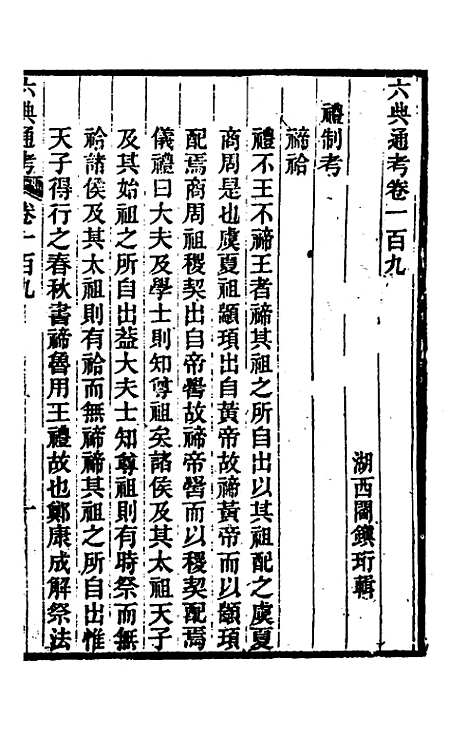 六典通考卷一百九
湖西閻鎮珩輯
禮制考
禘祫
禮不王不禘王者禘其祖之所自出以其祖配之虞夏
商周是也虞夏祖顓頊出自黃帝故禘黃帝而以顓頊
配焉商周祖稷契出自帝嚳故禘帝嚳而以稷契配焉
儀禮曰大夫及學士則知尊祖矣諸侯及其太祖天子
及其始祖之所自出葢大夫士知尊祖則有時祭而無
祫諸侯及其太祖則有祫而無禘禘其祖之所自出惟
天子得行之春秋書禘魯用王禮故也鄭康成解祭法
六典通考
卷一百九
一